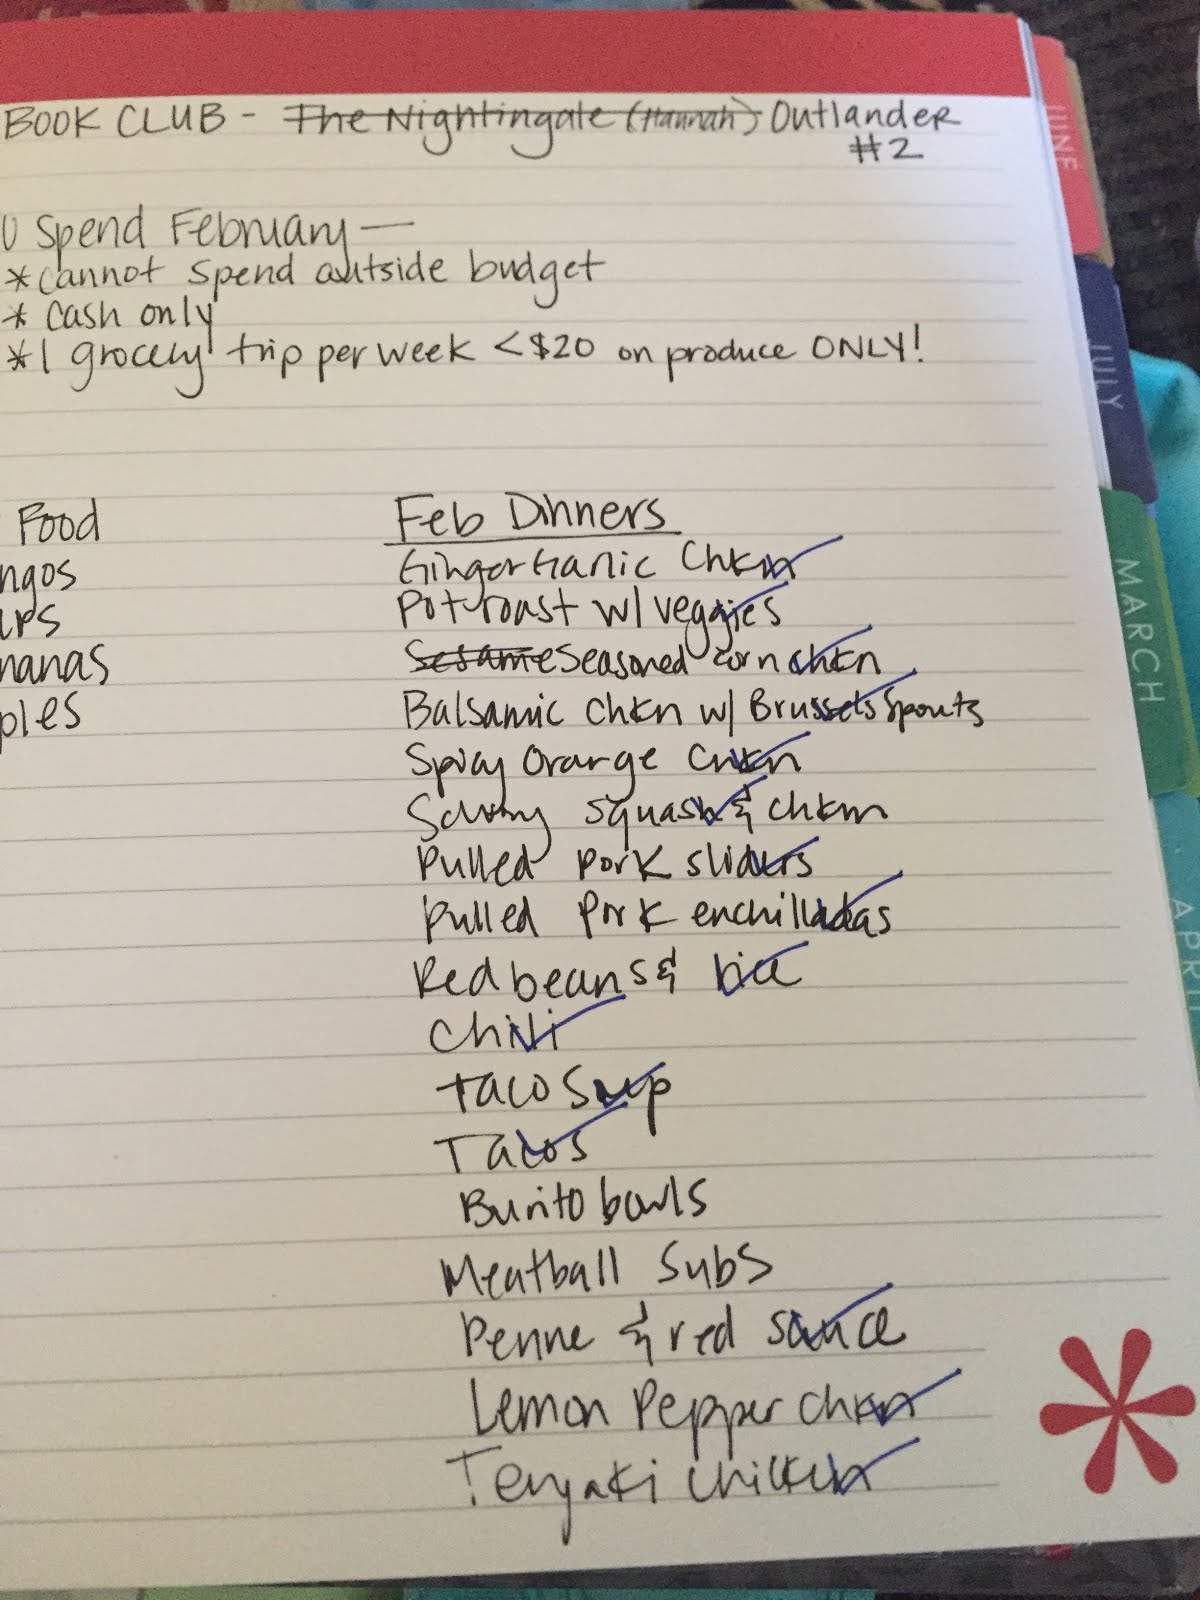 BOOK CLUB - The Nightingale (Hannah) Outlander
#2
JUNE
O Spend February —
* cannot spend outside budget
* cash only
* 1 grocery trip per week < $20 on produce ONLY!
JULY
Food
Feb Dinners
ngos
Ginger Garlic Chkn
Pot roast w/ veggies
nanas
Sesame Seasoned corn chkn
MARCH
ples
Balsamic Chkn w/ Brussels Spouts
Spicy Orange Chkn
Savory squash & chkn
Pulled pork sliders
Pulled Pork enchilladas
APRIL
Red beans & rice
Chili
Taco Soup
Tacos
Burrito bowls
Meatball Subs
Penne & red sauce
Lemon Pepper Chkn
Teriyaki Chicken